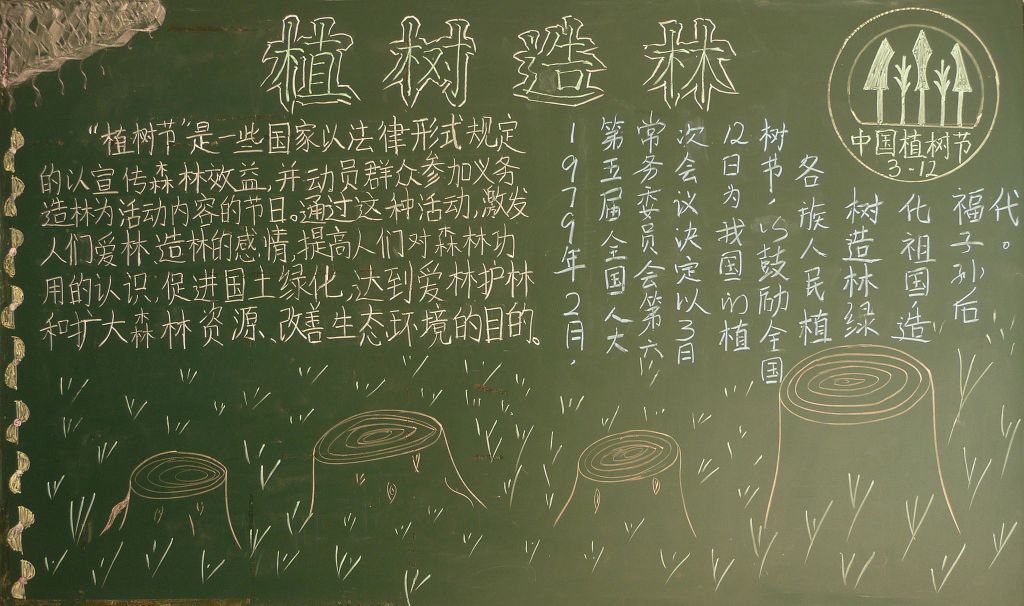 植树造林
“植树节”是一些国家以法律形式规定
的以宣传森林效益,并动员群众参加义务
造林为活动内容的节日。通过这种活动,激发
人们爱林造林的感情,提高人们对森林功
用的认识,促进国土绿化,达到爱林护林
和扩大森林资源、改善生态环境的目的。
1979年2月,
第五届全国人大
常务委员会第六
次会议决定以3月
12日为我国的植
树节,以鼓励全国
各族人民植
树造林绿
化祖国造
福子孙后
代。
中国植树节
3-12